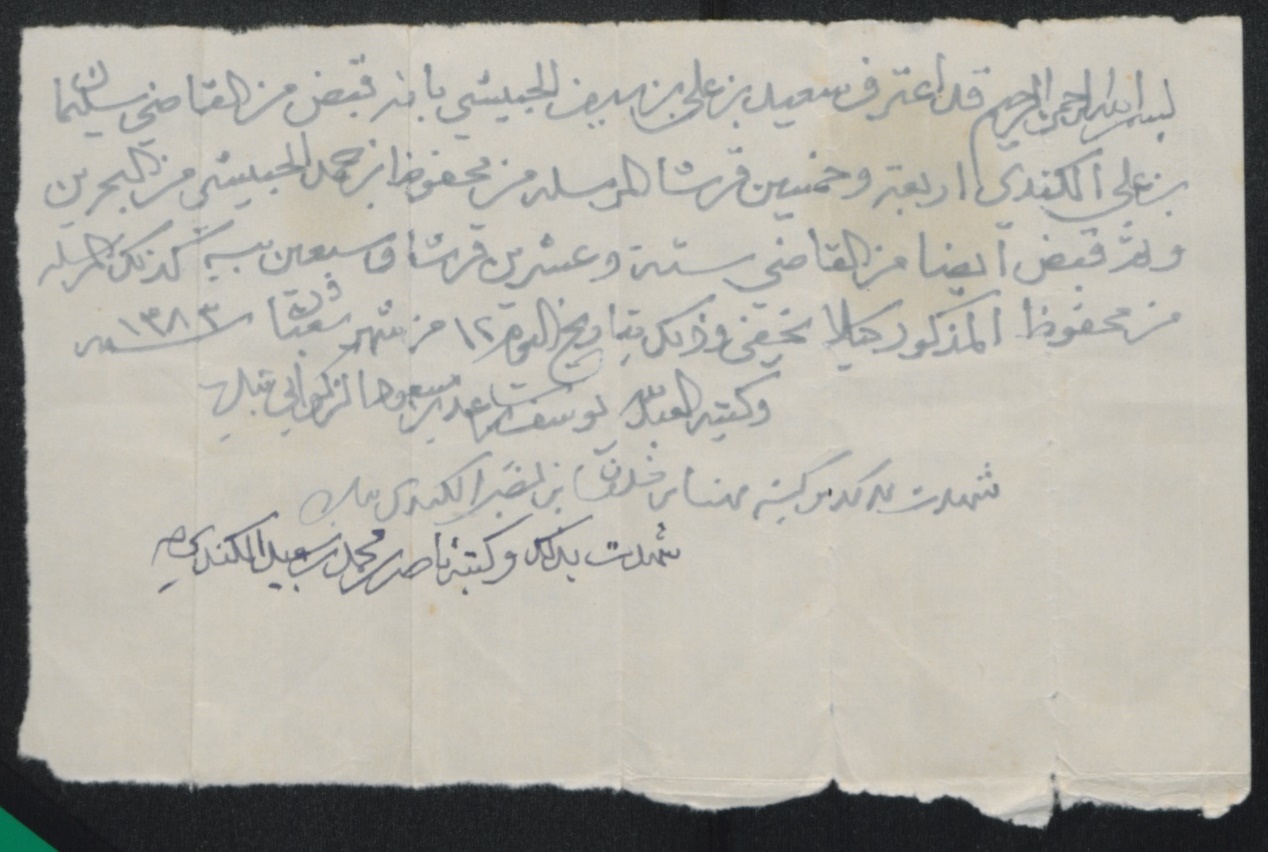 بسم الله الرحمن الرحيم قد اعترف سعيد بن علي بن سيف الحبيشي بانه قبض من القاضي سليمان
بن علي الكندي اربعة وخمسين قرشا المرسله من محفوظ بن حمد الحبيشي من البحرين
وقد قبض ايضا من القاضي ستة وعشرين قرشا وسبعين بيسه كذلك المرسله
من محفوظ المذكور كيلا يخفى وذلك بتاريخ اليوم ١٢ من شهر شعبان سنة ١٣٨٣
وكتبه العبد يوسف بن بيده
شهدت بذلك وكتبه مهنا بن خلفان بن الكندي بيده
شهدت بذلك وكتبه ناصر بن محمد بن سعيد الكندي